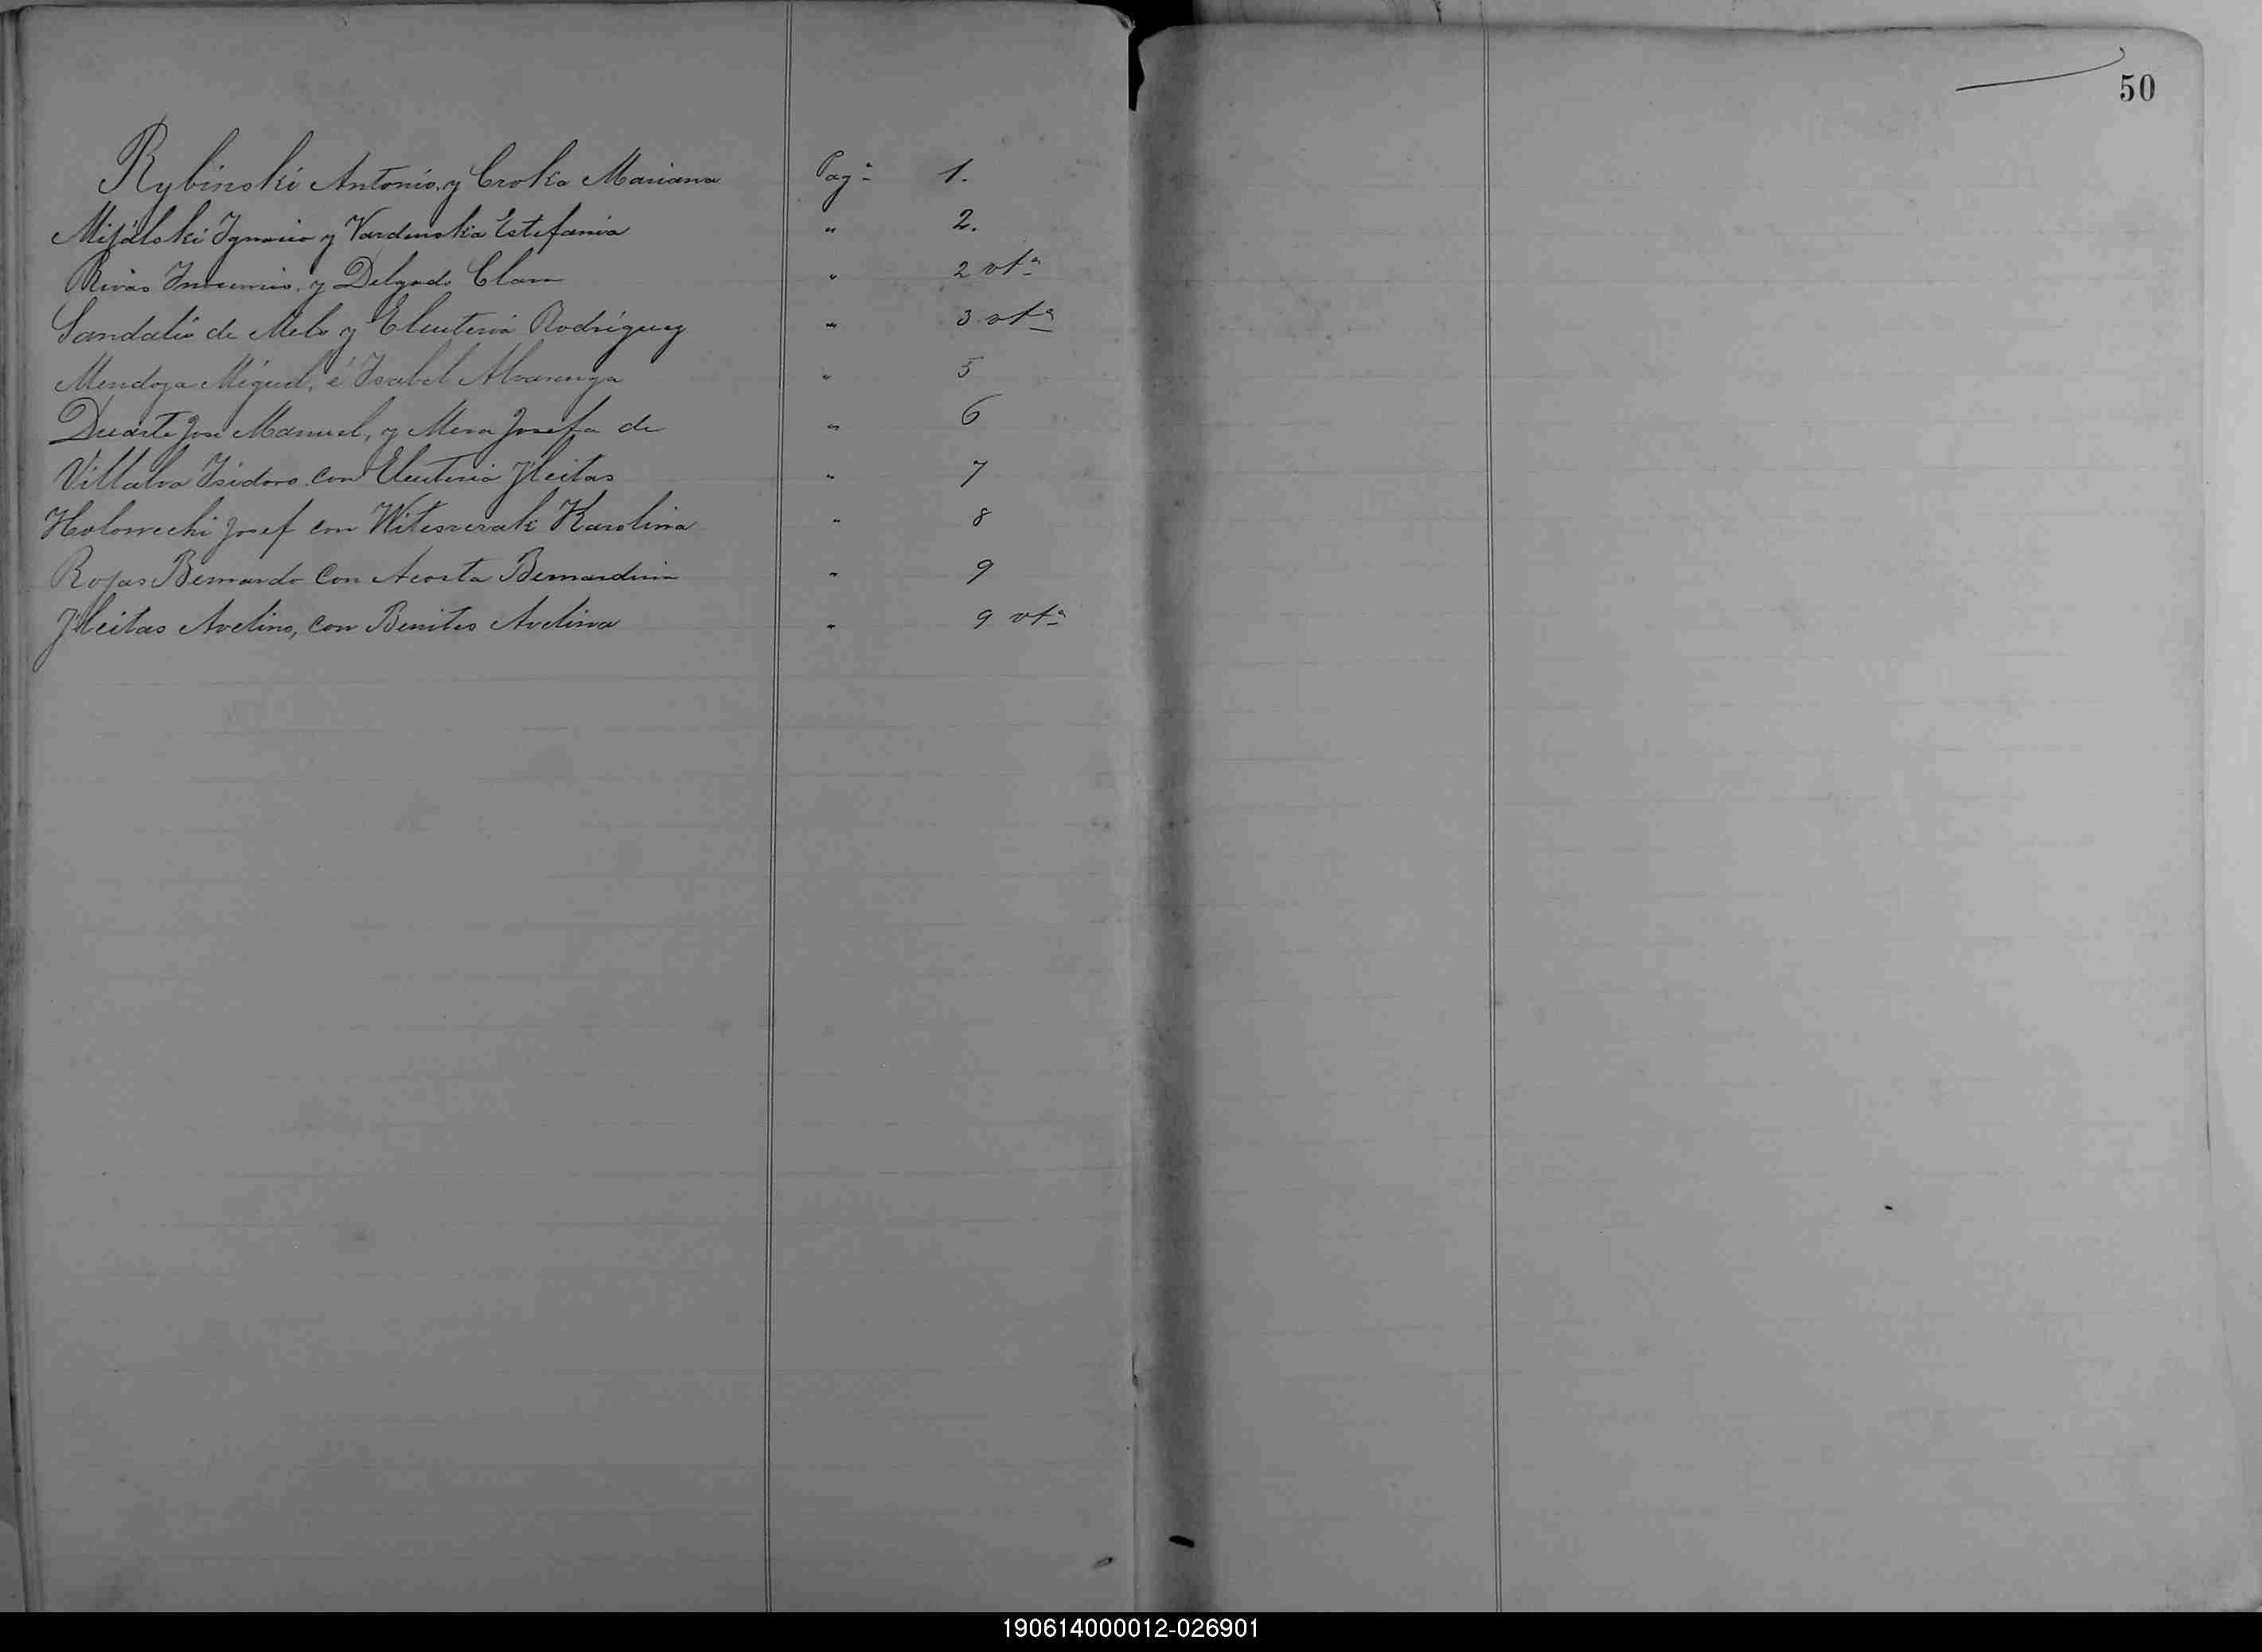 50
Rybinski Antonio, y Croka Mariana Pagª 1.
Mijalski Ygnacio y Vardenska Estefania " 2.
Rivas Inocencio, y Delgado Clara " 2 vtª
Sandalio de Melo y Eleuteria Rodriguez " 3 vtª
Mendoza Miguel, é Isabel Alvarenga " 5
Duarte José Manuel, y Mesa Josefa de " 6
Villalva Isidoro con Eleuteria Yleitas " 7
Holowechi Josef con Karolina " 8
Rojas Bernardo Con Acosta Bernardina " 9
Yleitas Avelino, con Benites Avelina " 9 vtª
190614000012-026901